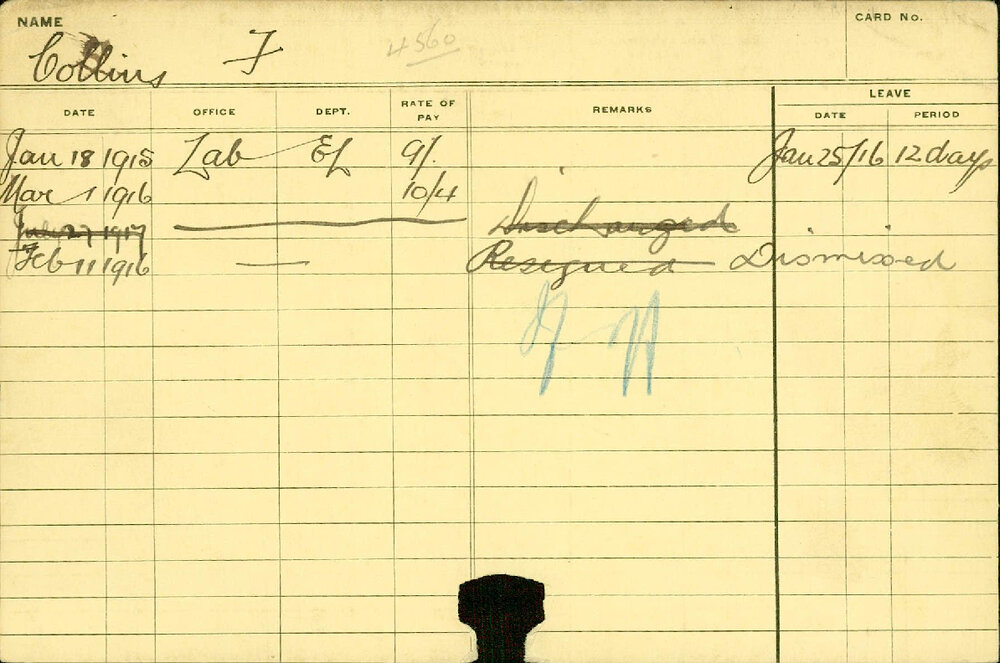 NAME CARD No.
Collins F 4560
LEAVE
DATE OFFICE DEPT. RATE OF PAY REMARKS DATE PERIOD
Jan 18 1915 Lab EL 9/. Jan 25/16 12 days
Mar 1 1916 10/4
July 27 1917 Discharged
Feb 11 1916 Resigned Dismissed